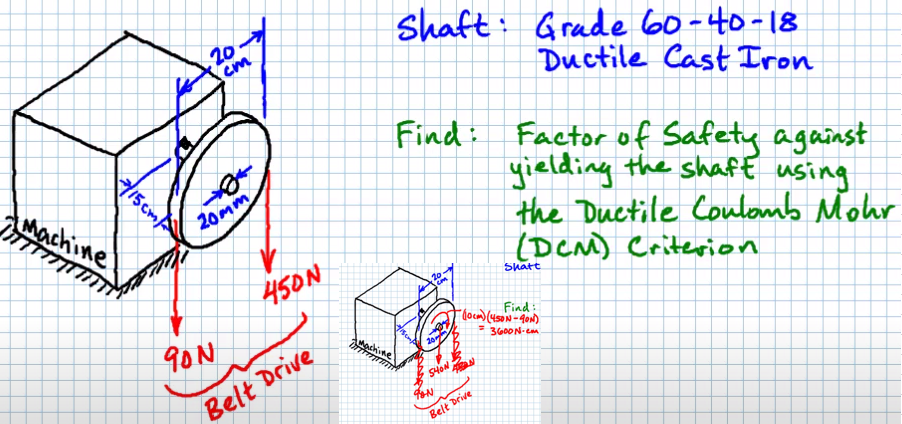 Shaft: Grade 60-40-18
Ductile Cast Iron
Find: Factor of Safety against
yielding the shaft using
the Ductile Coulomb Mohr
(DCM) Criterion
20
cm
15cm
20mm
Machine
450N
90N
Belt Drive
Shaft
20
cm
Find:
(10cm)(450N-90N)
= 3600N·cm
15cm
20mm
Machine
540N
90N
Belt Drive